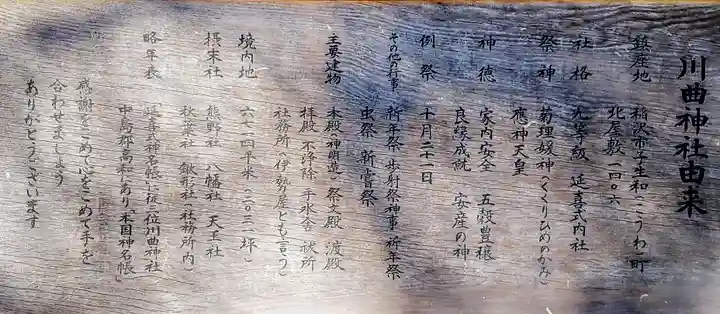 川曲神社由来
鎮座地　稲沢市子生和（こうわ）町
北屋敷一四〇六
社格　九等級　延喜式内社
祭神　菊理媛神（くくりひめのかみ）
應神天皇
神徳　家内安全　五穀豊穣
良縁成就　安産の神
例祭　十月二十一日
その他の行事　新年祭　歩射祭神事　祈年祭
虫祭　新嘗祭
主要建物　本殿（神明造）　祭文殿　渡殿
拝殿　不浄除　手水舎　祓所
社務所（伊勢屋とも言う）
境内地　六七一四平米（二〇三一坪）
摂末社　熊野社　八幡社　天王社
秋葉社　鍬形社（社務所内）
略年表　「延喜式神名帳」に従一位川曲神社
中島郡高和にあり「本国神名帳」
感謝をこめて心をこめて手を
合わせましょう
ありがとうございます